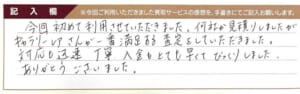 記入欄
※今回ご利用いただきました買取サービスの感想を、手書きにてご記入お願いします。
今回初めて利用させていただきました。何社か見積りしましたが
ギャラリーレアさんが一番満足な査定をしていただきました。
対応も迅速、丁寧、入金もとても早くてびっくりしました。
ありがとうございました。